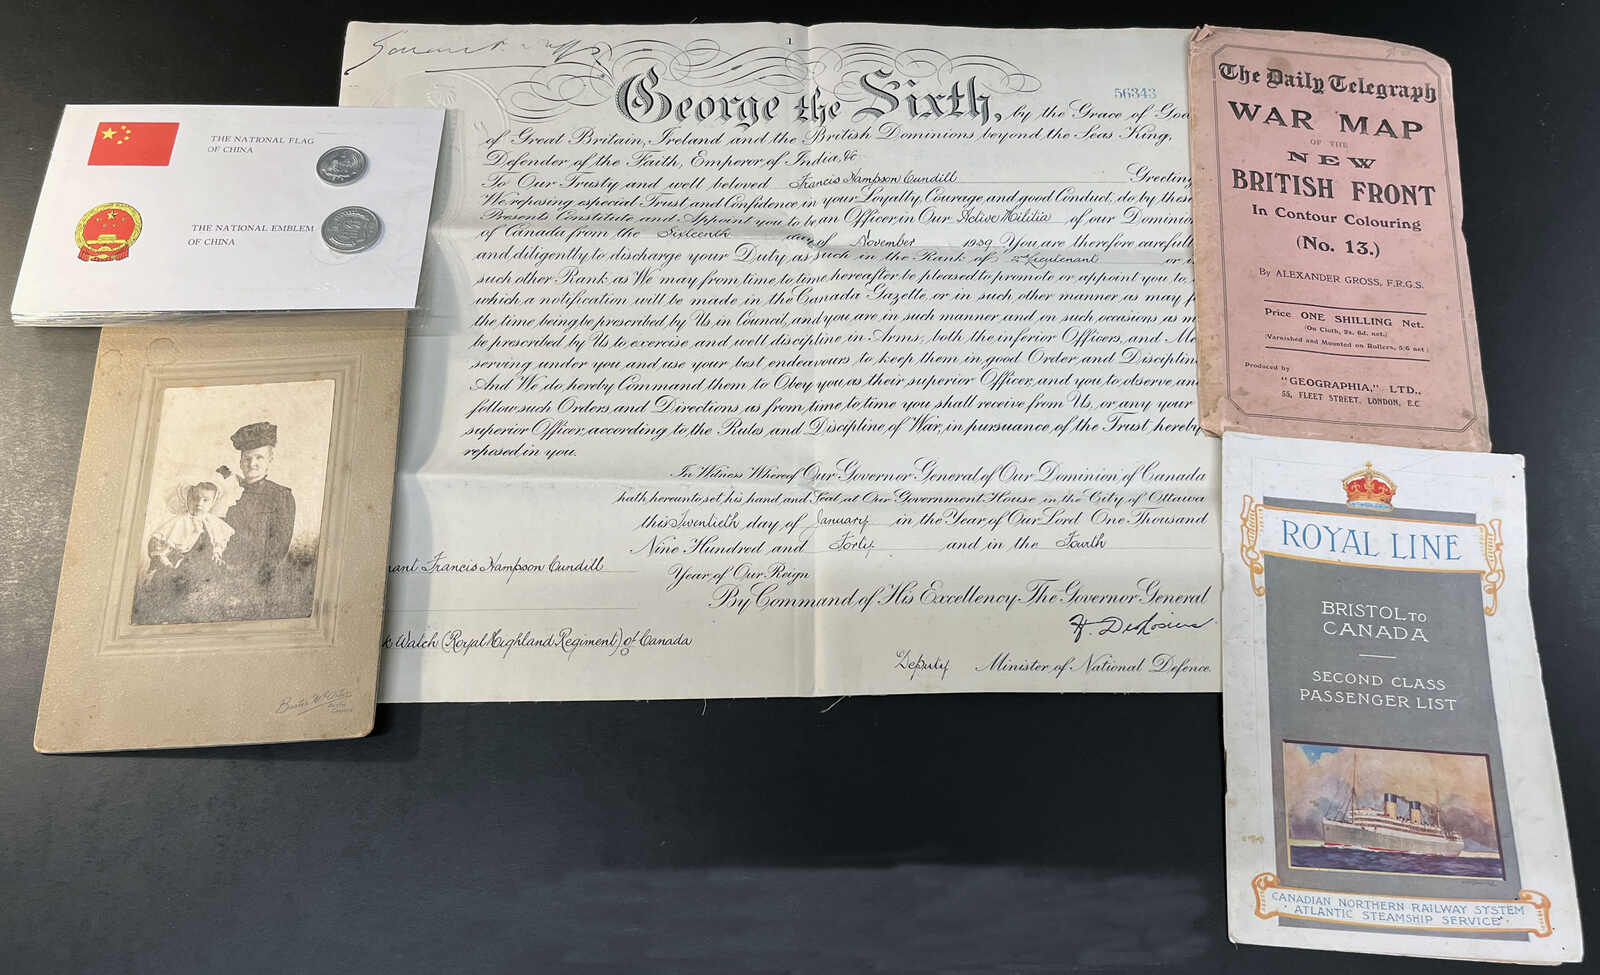 THE NATIONAL FLAG
OF CHINA
THE NATIONAL EMBLEM
OF CHINA
1
56343
George the Sixth, by the Grace of God
of Great Britain, Ireland and the British Dominions beyond the Seas King,
Defender of the Faith, Emperor of India, &c
To Our Trusty and well beloved Francis Hampson Cundill Greeting
We reposing especial Trust and Confidence in your Loyalty, Courage, and good Conduct, do by these
Presents Constitute and Appoint you to be an Officer in Our Active Militia of our Dominion
of Canada from the Sixteenth day of November 1939 You are therefore carefully
and diligently to discharge your Duty as such in the Rank of 2nd Lieutenant or in
such other Rank as We may from time to time hereafter be pleased to promote or appoint you to,
which a notification will be made in the Canada Gazette, or in such other manner as may
the time being be prescribed by Us in Council, and you are in such manner and on such occasions as
be prescribed by Us to exercise and well discipline in Arms, both the inferior Officers, and
serving under you and use your best endeavours to keep them in good Order and Discipline
And We do hereby Command them to Obey you as their superior Officer, and you to observe and
follow such Orders and Directions, as from time to time you shall receive from Us, or any your
superior Officer, according to the Rules and Discipline of War, in pursuance of the Trust hereby
reposed in you.
In Witness Whereof Our Governor General of Our Dominion of Canada
hath hereunto set his hand and Seal at Our Government House in the City of Ottawa
this Twentieth day of January in the Year of Our Lord One Thousand
Nine Hundred and Forty and in the Fourth
Year of Our Reign
By Command of His Excellency The Governor General
H. DesRosiers
Deputy Minister of National Defence.
Francis Hampson Cundill
Watch (Royal Highland Regiment) of Canada
The Daily Telegraph
WAR MAP
OF THE
NEW
BRITISH FRONT
In Contour Colouring
(No. 13.)
By ALEXANDER GROSS, F.R.G.S.
Price ONE SHILLING Net.
(On Cloth, 2s. 6d. net.)
(Varnished and Mounted on Rollers, 5/6 net)
Produced by
"GEOGRAPHIA," LTD.,
55, FLEET STREET, LONDON, E.C
ROYAL LINE
BRISTOL TO
CANADA
SECOND CLASS
PASSENGER LIST
CANADIAN NORTHERN RAILWAY SYSTEM
ATLANTIC STEAMSHIP SERVICE